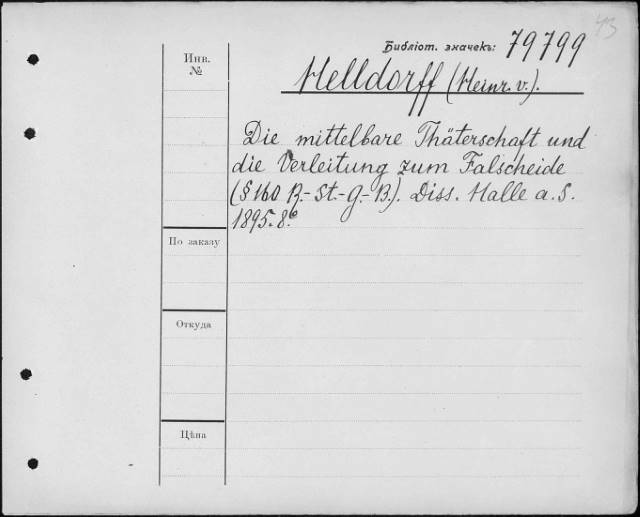 43
Библіот. значекъ: 79799
Helldorff (Heinr. v.).
Инв.
№
Die mittelbare Thäterschaft und
die Verleitung zum Falscheide
(§ 160 R.-St.-G.-B.). Diss. Halle a. S.
1895. 8.°
По заказу
Откуда
Цѣна